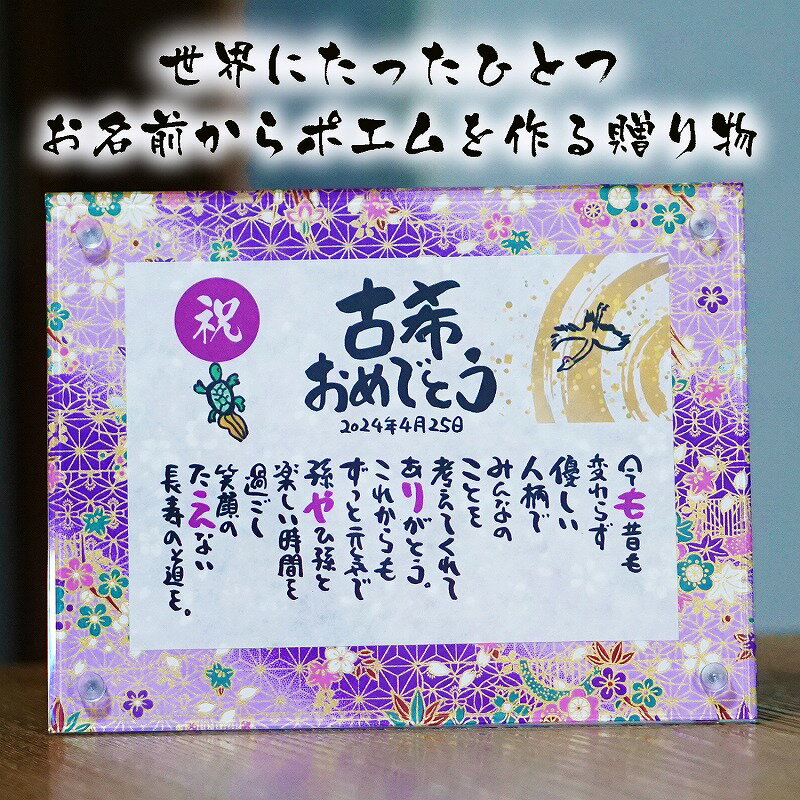 世界にたったひとつ
お名前からポエムを作る贈り物
祝
古希
おめでとう
2024年4月25日
今も昔も
変わらず
優しい
人柄で
みんなの
ことを
考えてくれて
ありがとう。
これからも
ずっと元気で
孫やひ孫と
楽しい時間を
過ごし
笑顔の
たえない
長寿の道を。